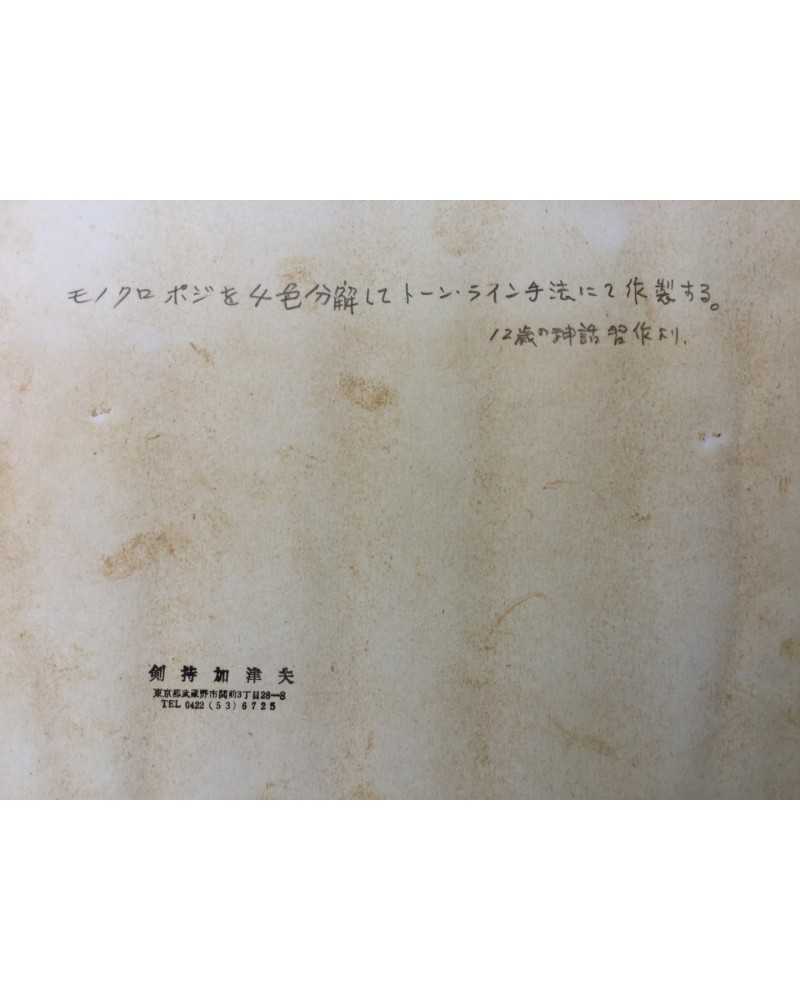 モノクロ ポジを4色分解して トーン・ライン手法にて作製する。
12歳の神話 習作より.
剣持加津夫
東京都武蔵野市関前3丁目28—8
TEL 0422 (53) 6725